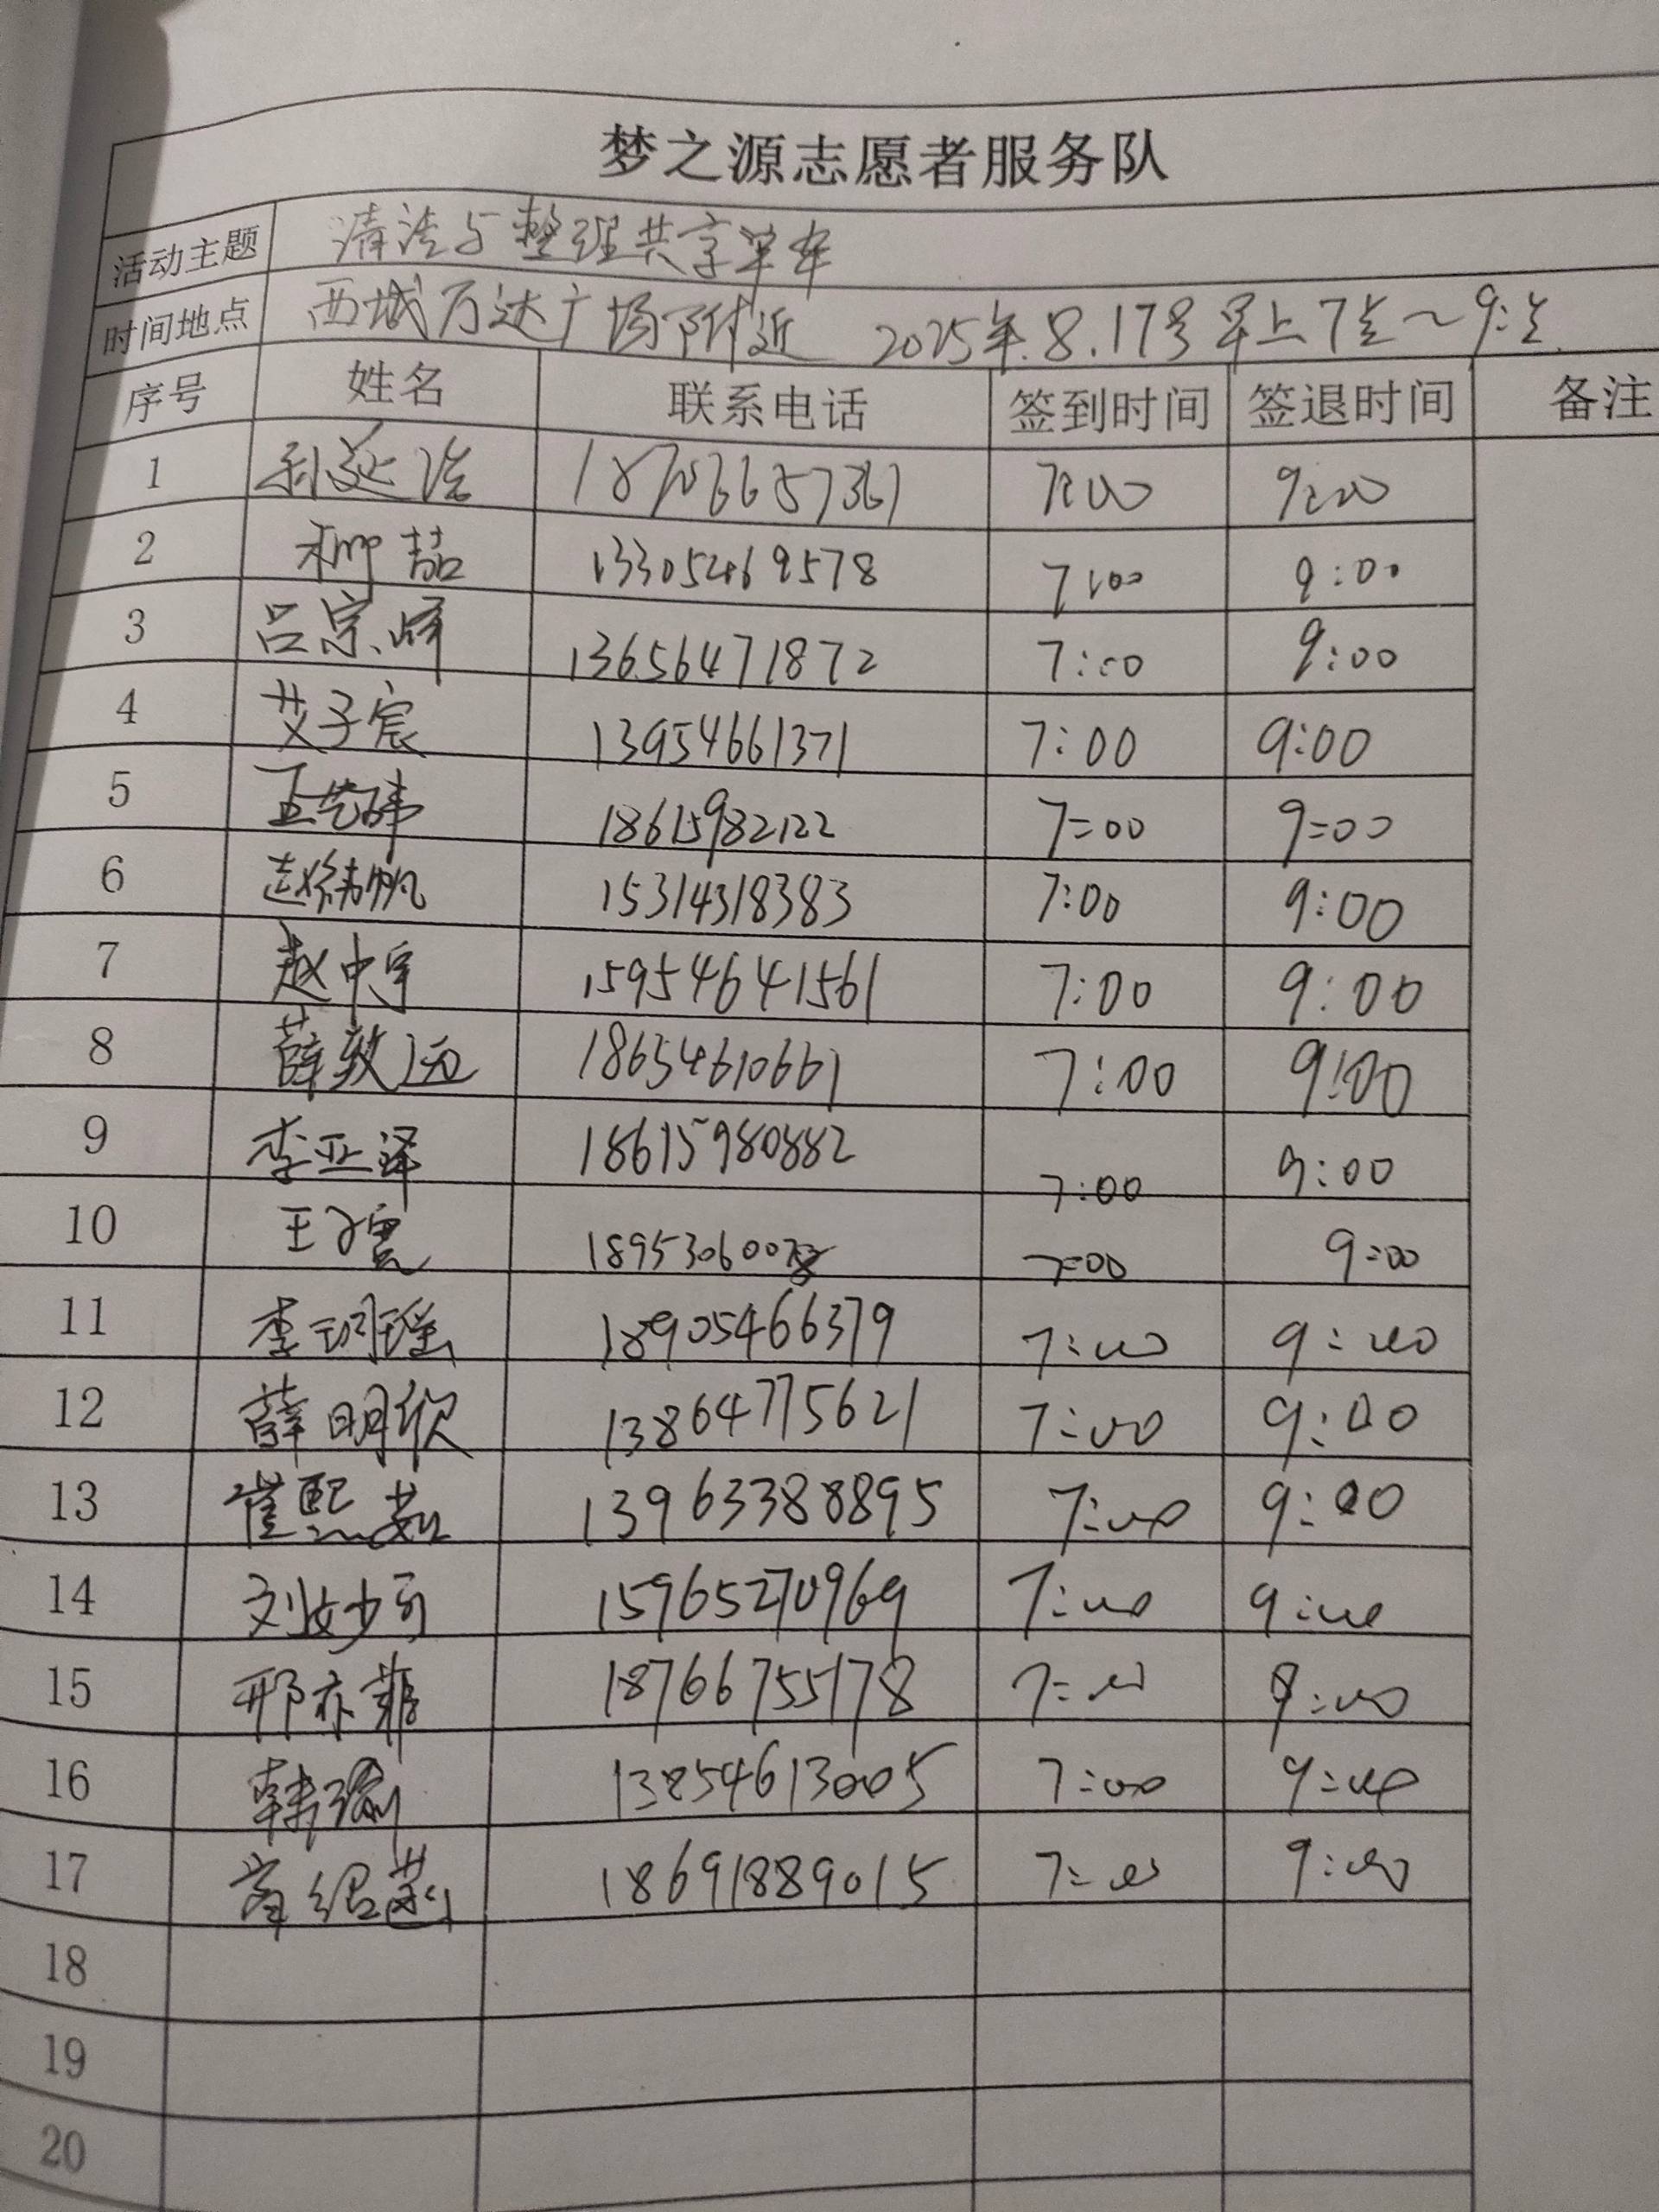 梦之源志愿者服务队
活动主题 清洁与整理共享单车
时间地点 西城万达广场附近 2025年.8.17号早上7点~9点
序号 姓名 联系电话 签到时间 签退时间 备注
1 7:00 9:00
2 柳喆 13305469578 7:00 9:00
3 吕宗峰 13656471872 7:00 9:00
4 艾子宸 13954661371 7:00 9:00
5 18615982122 7=00 9=00
6 赵纬帆 15314318383 7:00 9:00
7 赵中宇 15954641561 7:00 9:00
8 薛致远 18654610661 7:00 9:00
9 李亚泽 18615980882 7:00 9:00
10 7=00 9=00
11 李玥瑶 18905466379 7:00 9:00
12 薛明欣 13864775621 7:00 9:00
13 崔熙茹 13963388895 7:00 9:00
14 刘妙可 15965270969 7:00 9:00
15 邢亦菲 18766755178 7=00 9:00
16 韩瑜 13854613005 7:00 9:00
17 18691889015 7=00 9:00
18
19
20